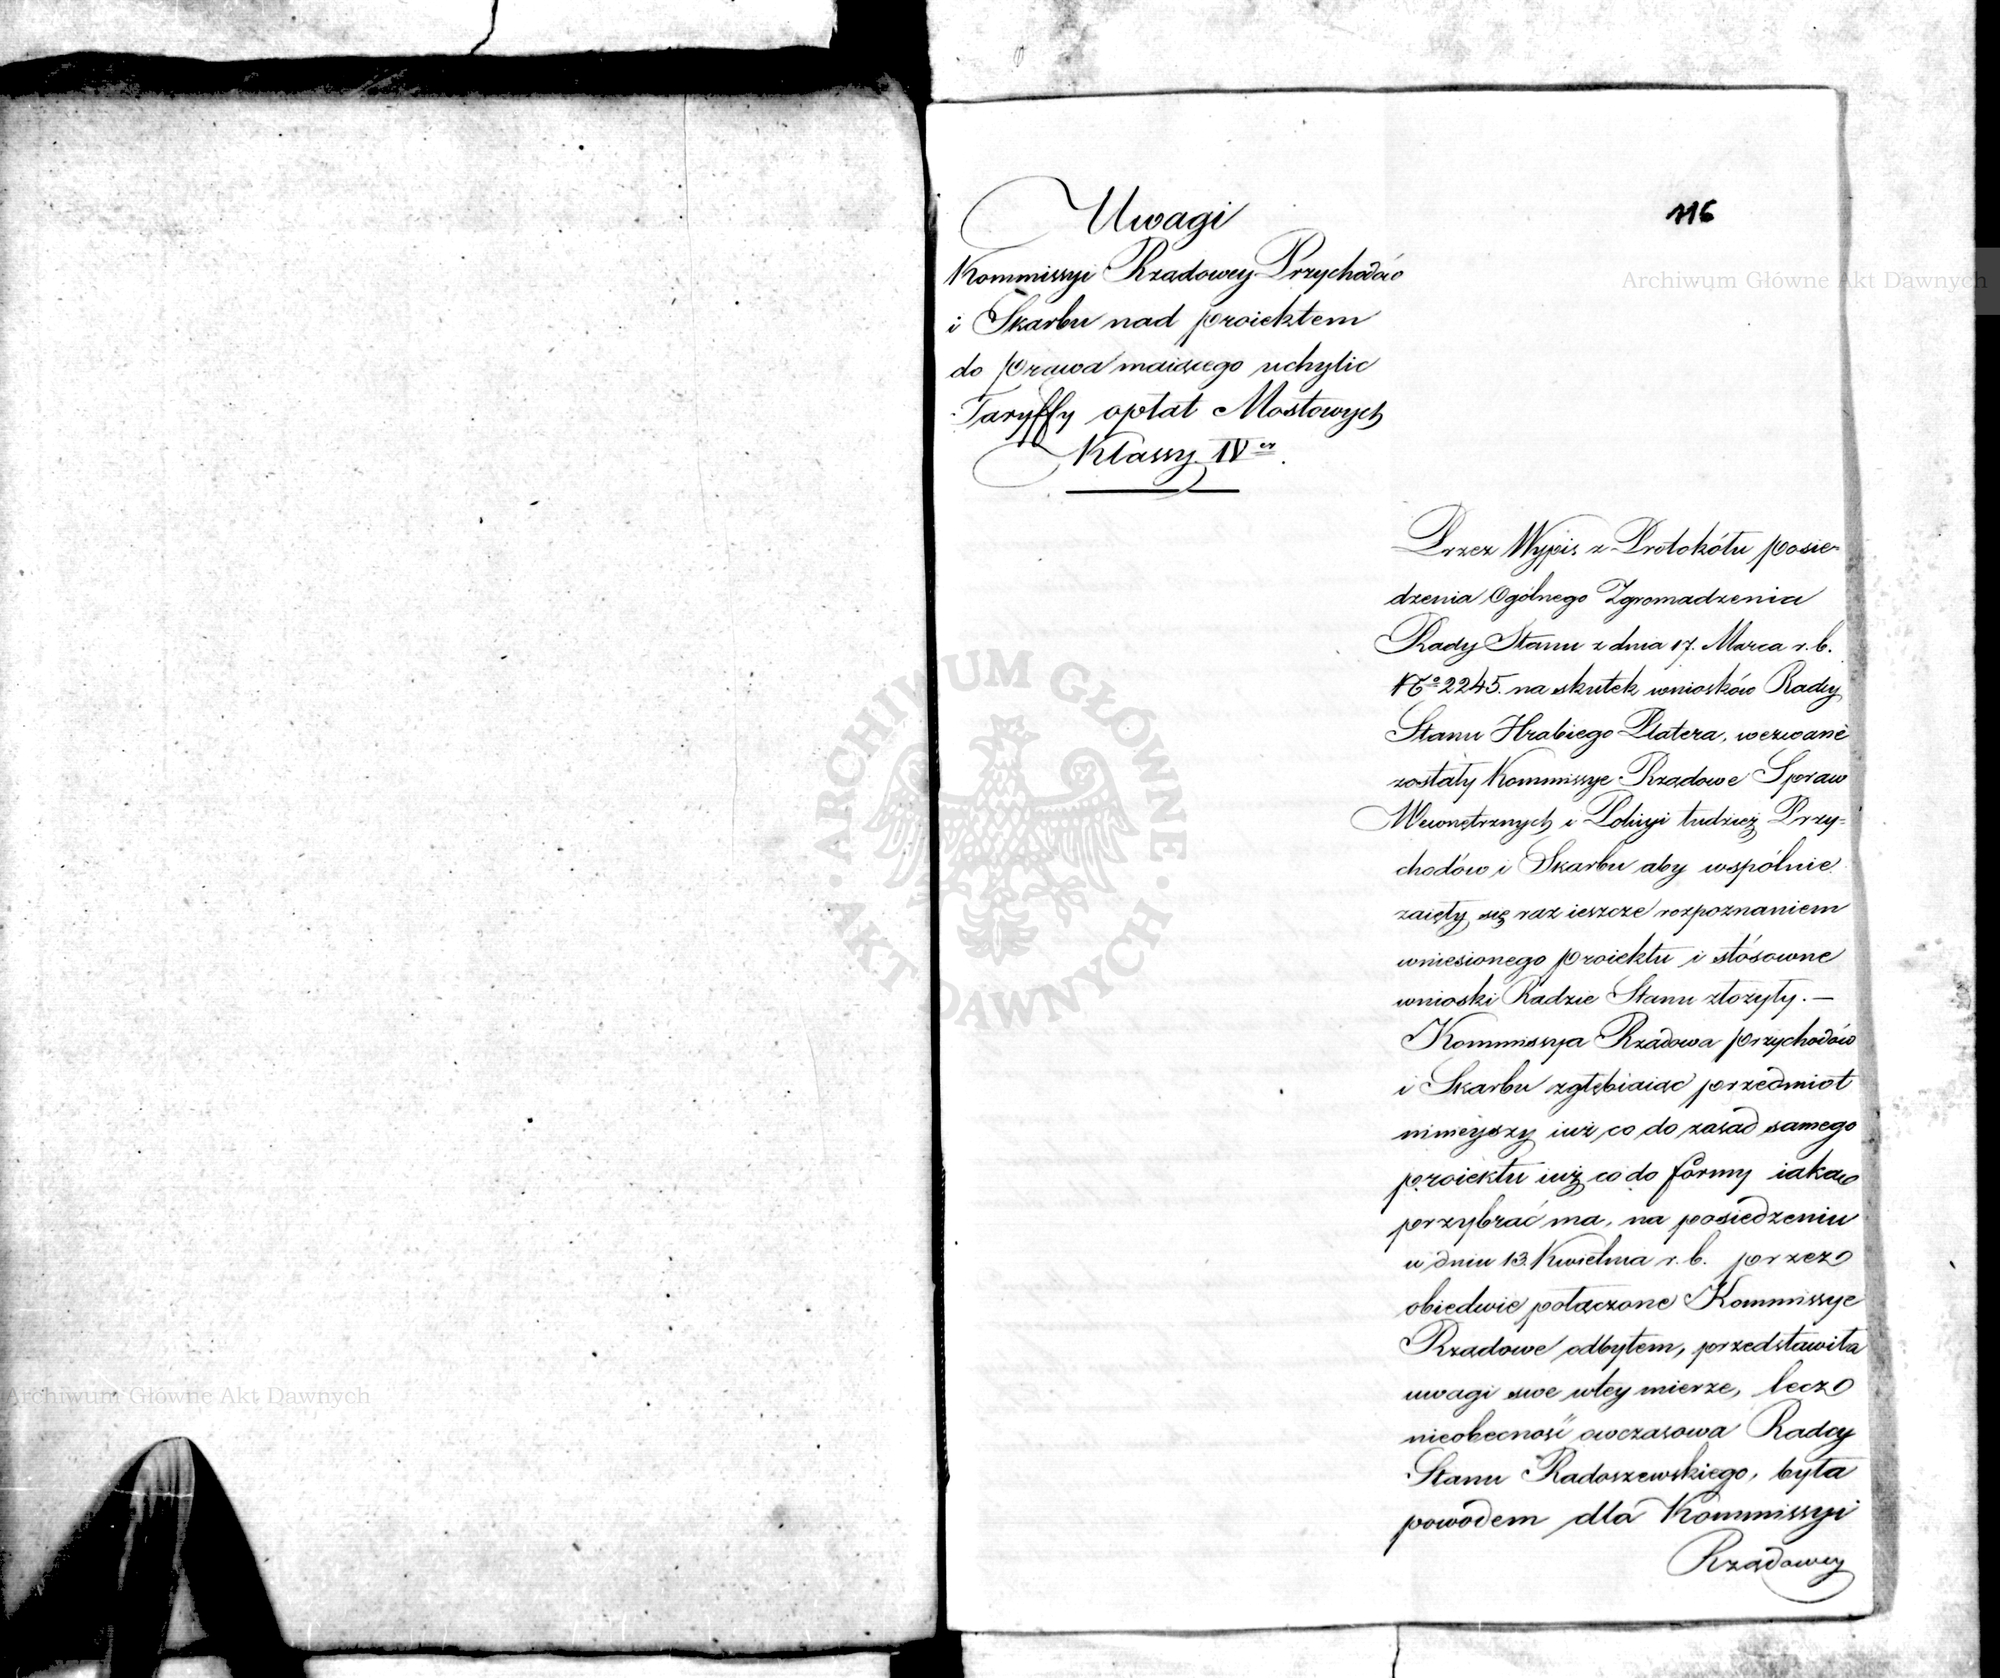 116
Uwagi
Kommissyi Rządowey Przychodów
i Skarbu nad proiektem
do prawa maiącego uchylic
Taryffy opłat Mostowych
Klassy IVer.
Przez Wypis z Protokółu posie-
dzenia Ogólnego Zgromadzenia
Rady Stanu z dnia 17. Marca r. b.
No 2245. na skutek wniosków Radcy
Stanu Hrabiego Platera, wezwane
zostały Kommissye Rządowe Spraw
Wewnętrznych i Policyi tudzież Przy-
chodów i Skarbu aby wspólnie
zaięły się raz ieszcze rozpoznaniem
wniesionego proiektu i stósowne
wnioski Radzie Stanu złożyły. —
Kommissya Rządowa przychodów
i Skarbu zgłębiaiąc przedmiot
ninieyszy iuż co do zasad samego
proiektu iuż co do formy iaką
przybrać ma, na posiedzeniu
w dniu 13. Kwietnia r. b. przez
obiedwie połączone Kommissye
Rządowe odbytem, przedstawiła
uwagi swe wtey mierze, lecz
nieobecność owczasowa Radcy
Stanu Radoszewskiego, była
powodem dla Kommissyi
Rządowey
Archiwum Główne Akt Dawnych
Archiwum Główne Akt Dawnych
ARCHIWUM GŁÓWNE · AKT DAWNYCH ·